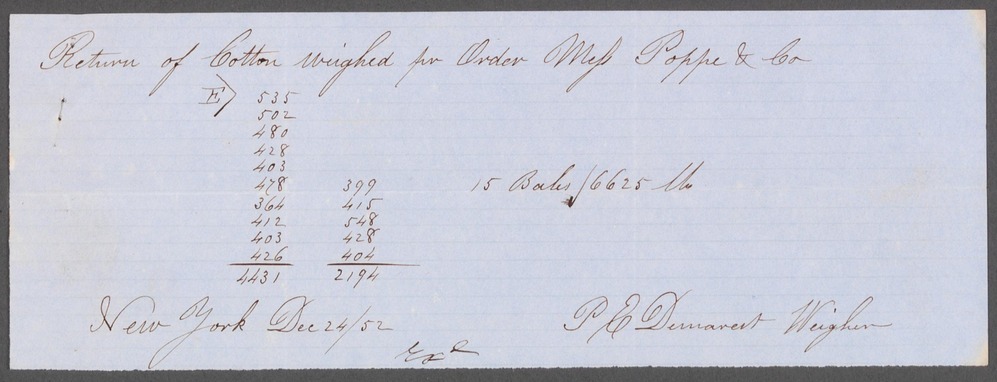 Return of Cotton weighed pr Order Mess Poppe & Co
E> 535
502
480
428
403
478 399 15 Bales / 6625 lbs
364 415
412 548
403 428
426 404
4431 2194
New York Dec 24/52 P E Demarest Weigher